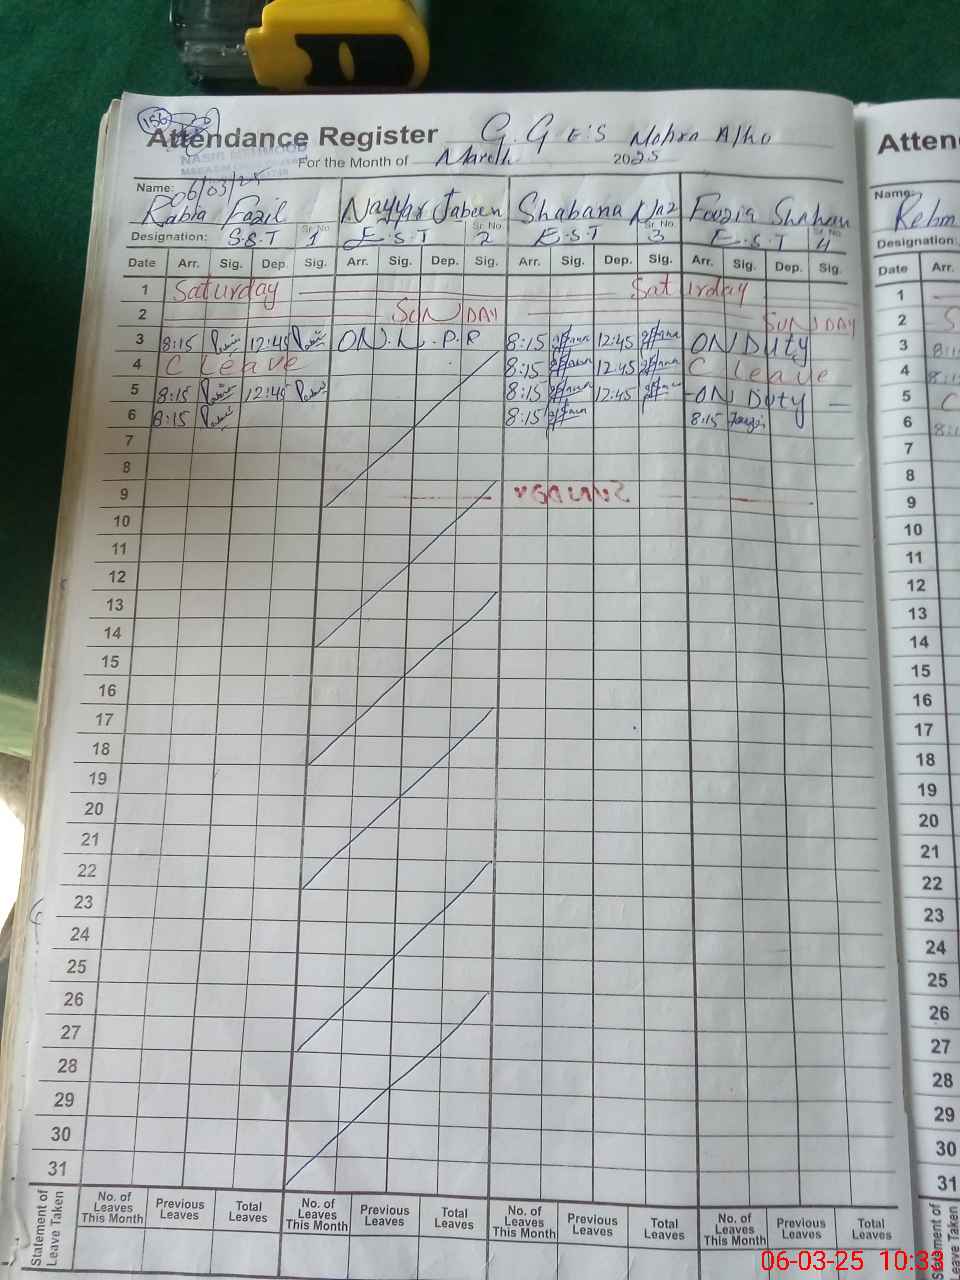 156
Attendance Register G.G E.S Mohra Alho
For the Month of March 2025
NASIR MEHMOOD
06/03/25
Name: Rabia Fazil Nayyar Jabeen Shabana Naz Fouzia Shaheen
Designation: S.S.T Sr No. 1 E.S.T Sr No. 2 E.S.T Sr No. 3 E.S.T Sr No. 4
Date Arr. Sig. Dep. Sig. Arr. Sig. Dep. Sig. Arr. Sig. Dep. Sig. Arr. Sig. Dep. Sig.
1 Saturday Saturday
2 SUNDAY SUNDAY
3 8:15 12:45 ON.L.P.R 8:15 12:45 ON Duty
4 C Leave 8:15 12:45 C Leave
5 8:15 12:45 8:15 12:45 ON Duty
6 8:15 8:15 8:15
7
8
9 SUNDAY
10
11
12
13
14
15
16
17
18
19
20
21
22
23
24
25
26
27
28
29
30
31
Statement of Leave Taken
No. of Leaves This Month Previous Leaves Total Leaves No. of Leaves This Month Previous Leaves Total Leaves No. of Leaves This Month Previous Leaves Total Leaves No. of Leaves This Month Previous Leaves Total Leaves
Atten
Name: Rehm
Designation:
Date Arr.
1
2 S
3 8:1
4 8:1
5 C
6 8:1
7
8
9
10
11
12
13
14
15
16
17
18
19
20
21
22
23
24
25
26
27
28
29
30
31
Statement of
eave Taken
06-03-25 10:33